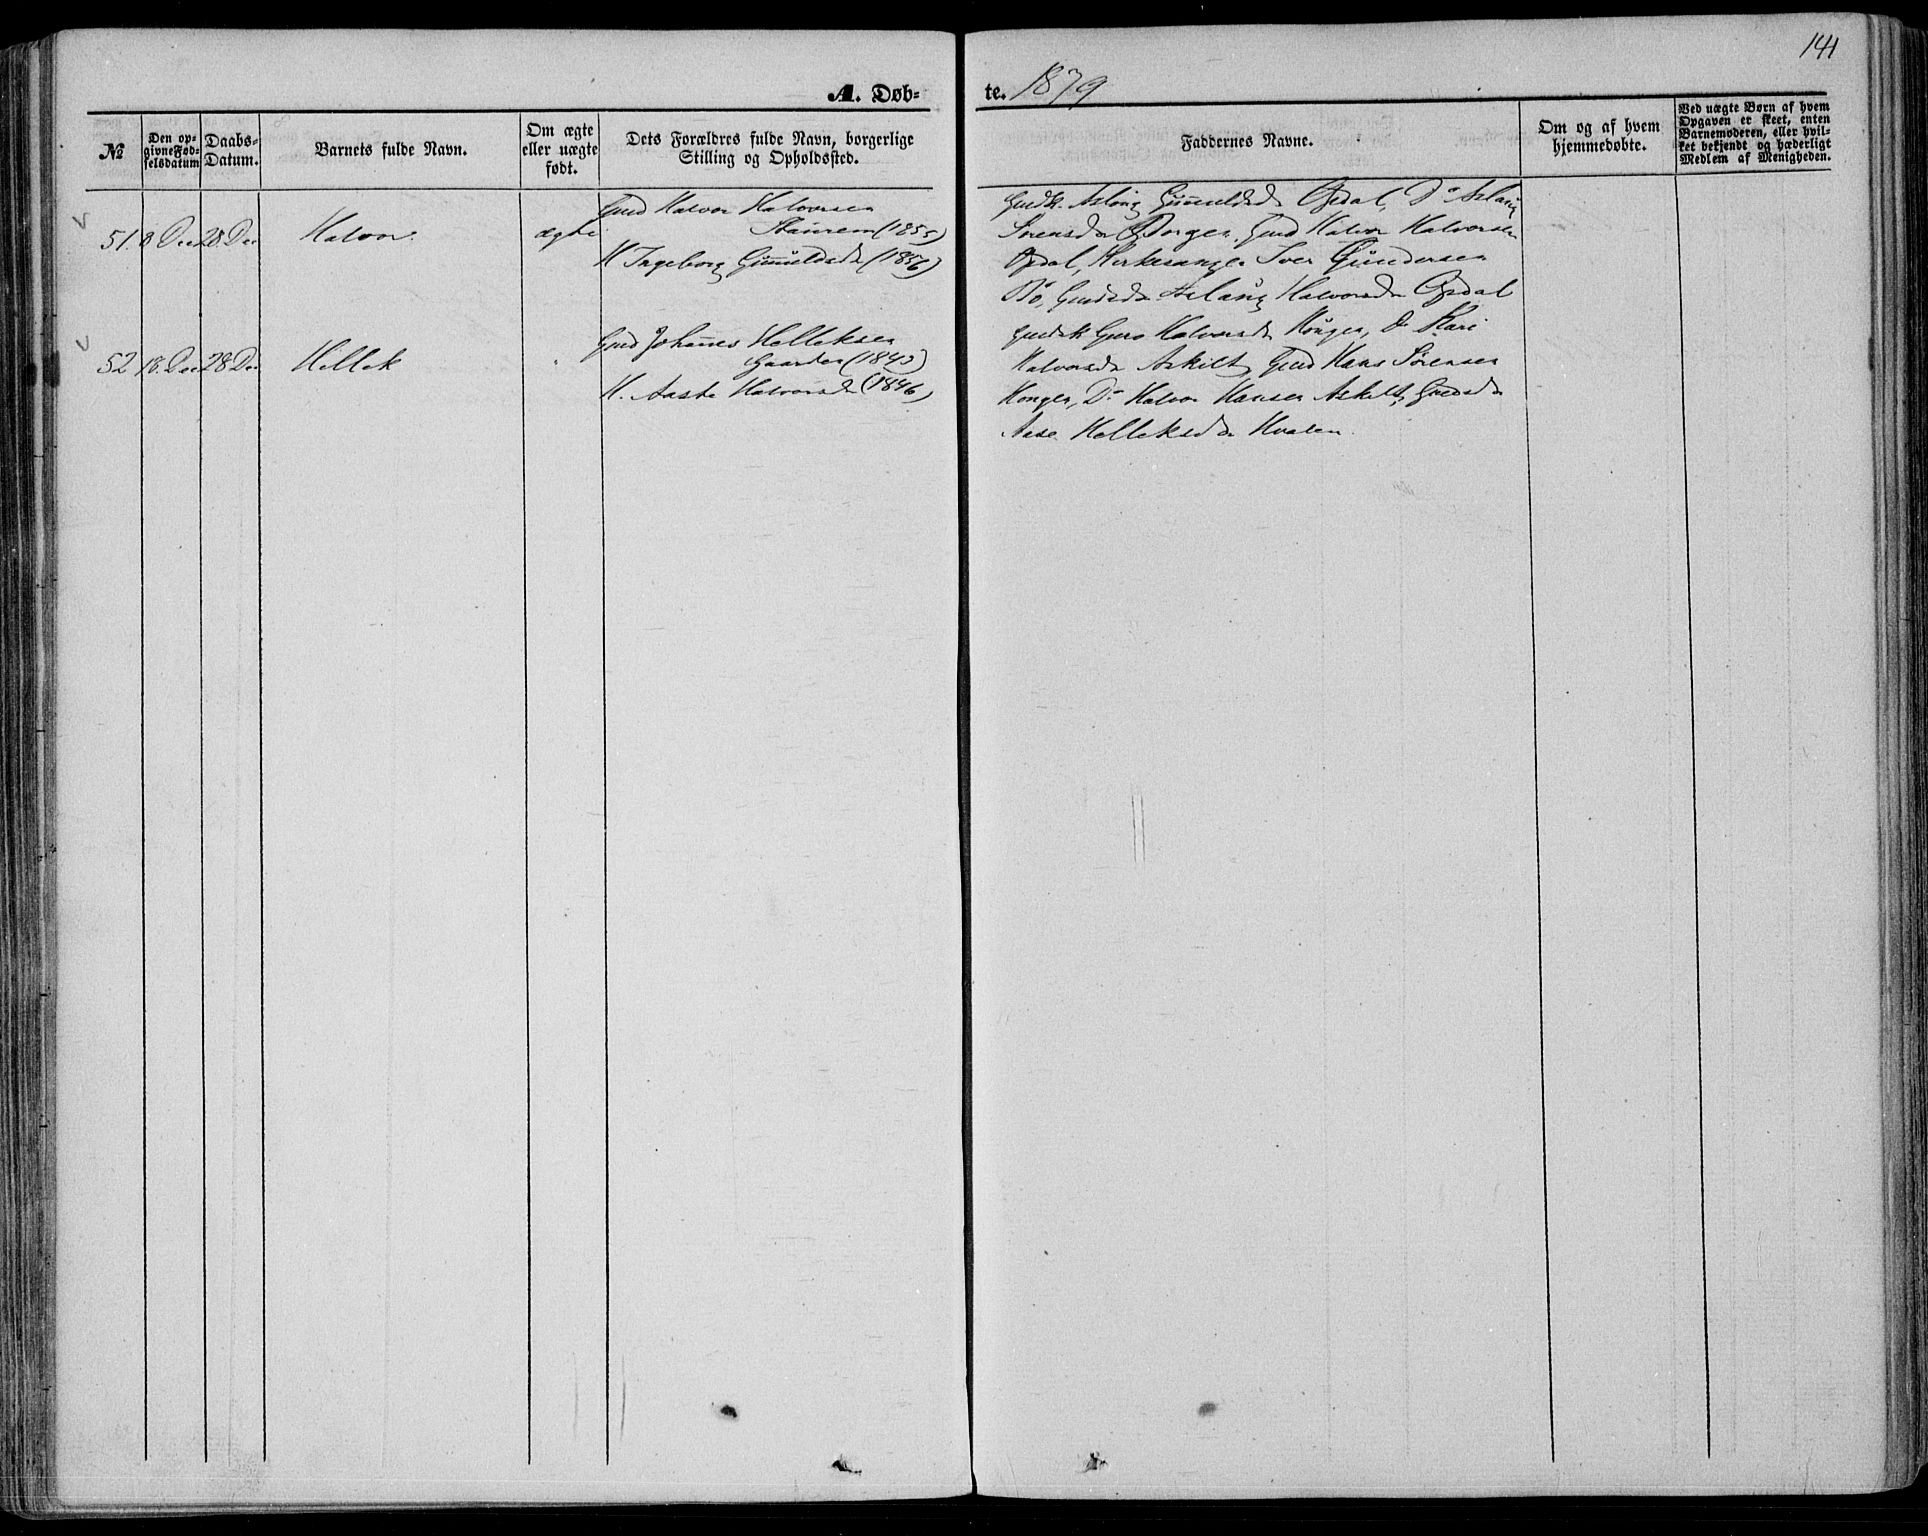 141
A. Døb-
te. 1879
№
Den op-
givne Fød-
selsdatum
Daabs-
Datum.
Barnets fulde Navn.
Om ægte
eller uægte
født.
Dets Forældres fulde Navn, borgerlige
Stilling og Opholdssted.
Faddernes Navne.
Om og af hvem
hjemmedøbte.
Ved uægte Børn af hvem
Opgaven er skeet, enten
Barnemoderen, eller hvil-
ket bekjendt og hæderligt
Medlem af Menigheden.
51. 8 Dec 28 Dec Halvor. ægte
Gmd Halvor Halvorsen
Staurem (1855)
K Ingeborg Gunuldsd (1856)
Gmdk. Aslaug Gunuldsd Opdal, Do Aslaug
Sørensd Borgen. Gmd Halvor Halvorsen
Opdal, Kirkesanger Iver Gundersen
Bø, Gmdsd Aslaug Halvorsd Opdal
52 18. Dec 28 Dec Hellek "
Gmd Johannes Helleksen
Gaarden (1843)
K. Aaste Halvorsd (1846)
Gmdsk Gjøro Halvorsd Konges, Do Kari
Halvorsd Askilt, Gmd Hans Sørensen
Konges, Do Halvor Hansen Askilt, Gmdsd
Aase Helleksd Hvalen.